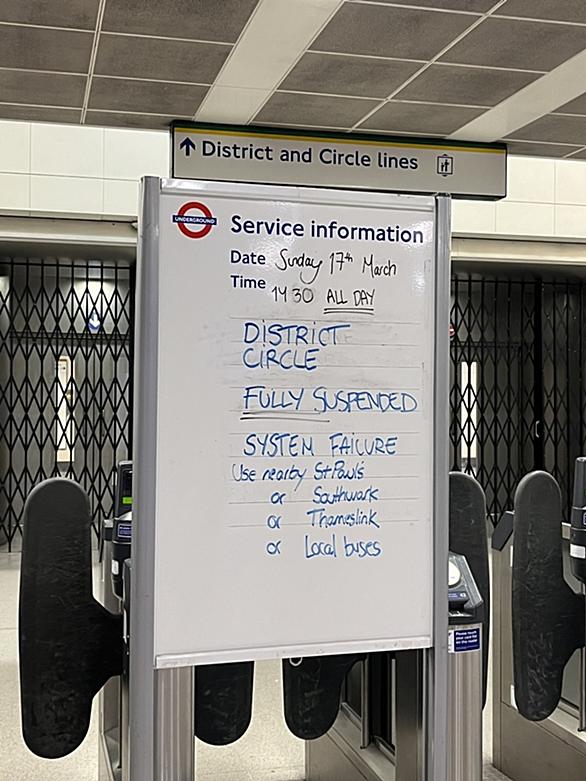 District and Circle lines
UNDERGROUND
Service information
Date Sunday 17th March
Time 1430 ALL DAY
DISTRICT
CIRCLE
FULLY SUSPENDED
SYSTEM FAILURE
Use nearby St Paul's
or Southwark
or Thameslink
or Local buses